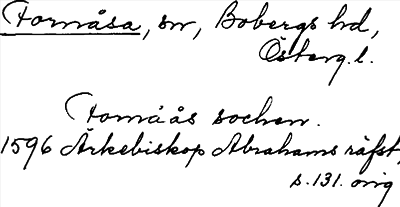 Fornåsa, sn, Bobergs hd,
Österg. l.
Fornåås sochen.
1596 Ärkebiskop Abrahams räfst,
s. 131. orig